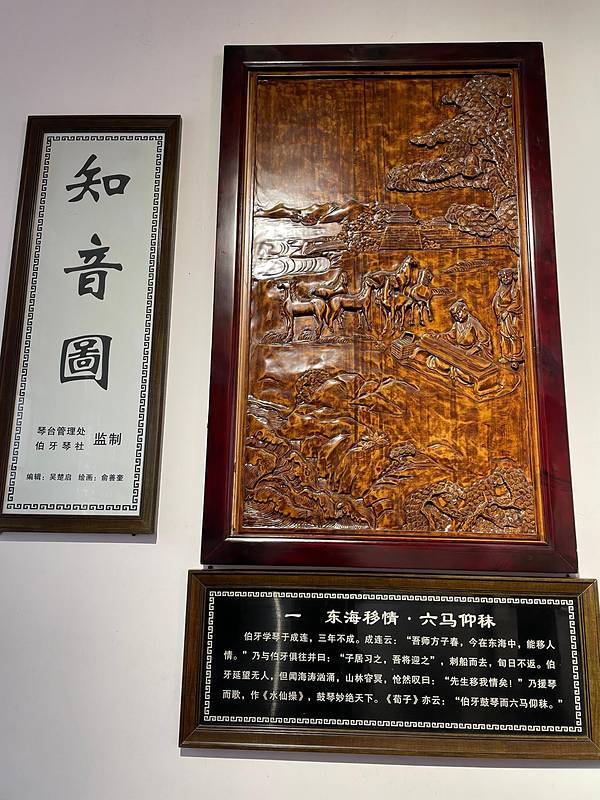 知音圖
琴台管理处
伯牙琴社
监制
编辑：吴楚启 绘画：俞善奎
一 东海移情·六马仰秣
伯牙学琴于成连，三年不成。成连云：“吾师方子春，今在东海中，能移人
情。”乃与伯牙俱往并曰：“子居习之，吾将迎之”，刺船而去，旬日不返。伯
牙延望无人，但闻海涛汹涌，山林窅冥，怆然叹曰：“先生移我情矣！”乃援琴
而歌，作《水仙操》，鼓琴妙绝天下。《荀子》亦云：“伯牙鼓琴而六马仰秣。”